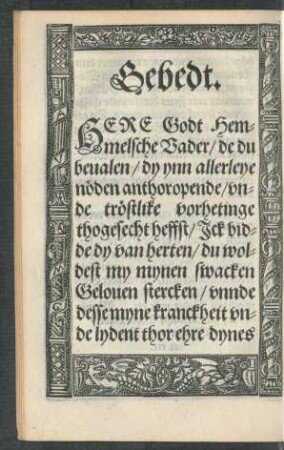 Gebedt.
HERE Godt Hem-
melsche Vader / de du
beualen / dy ynn allerleye
nöden anthoropende / vn-
de tröstlike vorhetinge
thogesecht heffst / Jck bid-
de dy van herten / du wol-
dest my mynen swacken
Gelouen stercken / vnnde
desse myne kranckheit vn-
de lydent thor ehre dynes